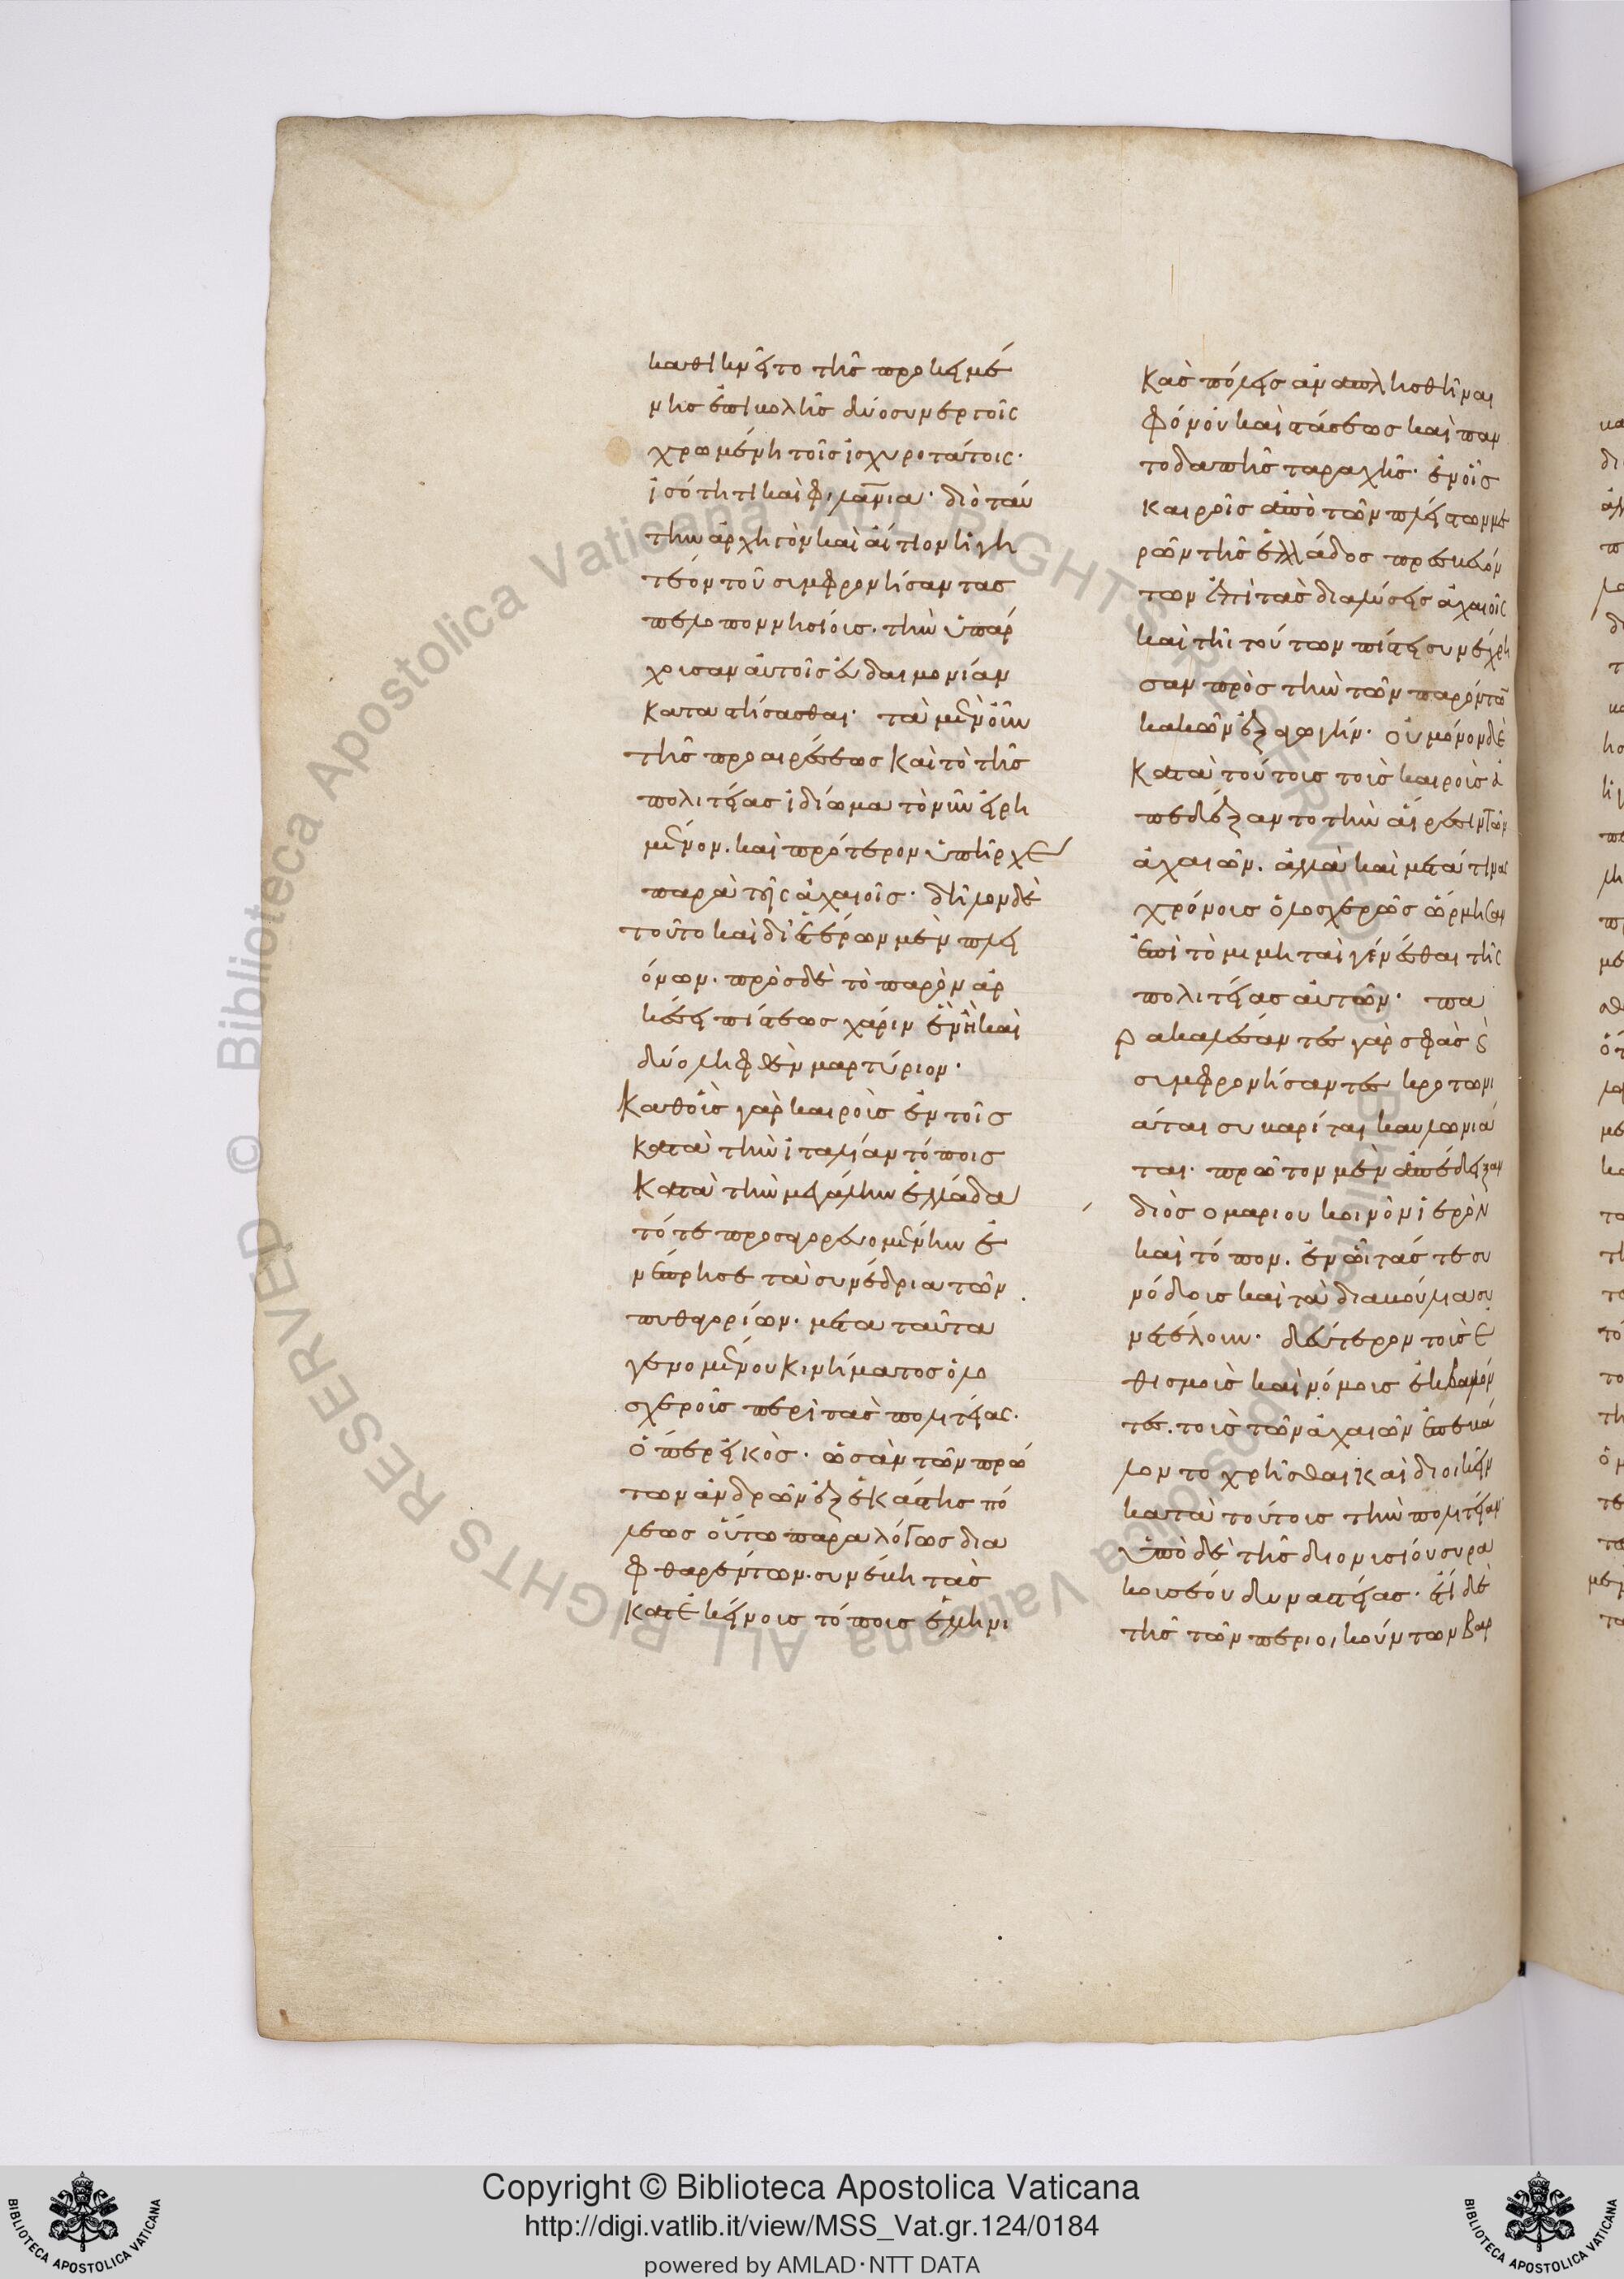 καθικνεῖτο τῆς προκειμέ
νης ἐπιβολῆς δύο συνεργοῖς
χρωμένη τοῖς ἰσχυροτάτοις·
ἰσότητι καὶ φιλανια· διὸ ταύ
την ἀρχηγὸν καὶ αἴτιον ἡγη
τέον τοῦ συμφρονήσαντας
πελοποννησίους. τὴν ὑπάρ
χουσαν αὐτοῖς εὐδαιμονίαν
καταστήσασθαι· τὰ μὲν οὖν
τῆς προαιρέσεως καὶ τὸ τῆς
πολιτείας ἰδίωμα τὸ νῦν εἰρη
μένον. καὶ πρότερον ὑπῆρχε
παρὰ τοῖς ἀχαιοῖς· δῆλον δὲ
τοῦτο καὶ δι' ἑτέρων μὲν πλει
όνων. πρὸς δὲ τὸ παρὸν ἀρ
κέσει πίστεως χάριν ἓν ἢ καὶ
δύο ληφθὲν μαρτύριον·
Καθ' οὓς γὰρ καιροὺς ἐν τοῖς
κατὰ τὴν ἰταλίαν τόποις
κατὰ τὴν μεγάλην ἑλλάδα
τότε προσαγορευομένην ἐ
νέπρησε τὰ συνέδρια τῶν
πυθαγορίων· μετα ταῦτα
γενομένου κινήματος ὁλο
σχεροῦς περὶ τὰς πολιτείας·
ὅπερ εἰκὸς· ὡς ἂν τῶν πρώ
των ἀνδρῶν ἐξ ἑκάστης πό
λεως οὕτω παραλόγως δια
φθαρέντων. συνέβη τὰς
κατ' ἐκείνους τόπους ἑλληνι
κὰς πόλεις ἀναπλησθῆναι
φόνου καὶ στάσεως καὶ παν
τοδαπῆς ταραχῆς· ἐν οἷς
καιροῖς ἀπὸ τῶν πλείστων με
ρῶν τῆς ἑλλάδος πρεσβευόν
των ἐπὶ τὰς διαλύσεις ἀχαιοῖς
καὶ τῇ τούτων πίστει συνεχρή
σαντο πρὸς τὴν τῶν παρόντων
κακῶν ἐξαγωγήν· οὐ μόνον δὲ
κατὰ τούτους τοὺς καιροὺς ἀ
πεδέξαντο τὴν αἵρεσιν τῶν
ἀχαιῶν. ἀλλὰ καὶ μετά τινας
χρόνους ὁλοσχερῶς ὥρμησαν
ἐπὶ τὸ μιμηταὶ γενέσθαι τῆς
πολιτείας αὐτῶν· πα
ρακαλέσαντες γὰρ σφᾶς καὶ
συμφρονήσαντες κροτωνι
άται συβαρίται καυλωνιά
ται· πρῶτον μὲν ἀπέδειξαν
διὸς ομαριου κοινὸν ἱερὸν
καὶ τόπον. ἐν ᾧ τάς τε συ
νόδους καὶ τὰ διαβούλια συ
νετέλουν· δεύτερον τοὺς ἐ
θισμοὺς καὶ νόμους ἐκλαβόν
τες. τοὺς τῶν ἀχαιῶν ἐπεβά
λοντο χρῆσθαι καὶ διοικεῖν
κατὰ τούτους τὴν πολιτείαν
ὑπὸ δὲ τῆς διονυσίου συρα
κουσίου δυναστείας· ἔτι δὲ
τῆς τῶν περιοικούντων βαρ
© Biblioteca Apostolica Vaticana ALL RIGHTS RESERVED
© Biblioteca Apostolica Vaticana ALL RIGHTS RESERVED
Copyright © Biblioteca Apostolica Vaticana
http://digi.vatlib.it/view/MSS_Vat.gr.124/0184
powered by AMLAD·NTT DATA
BIBLIOTECA APOSTOLICA VATICANA
BIBLIOTECA APOSTOLICA VATICANA